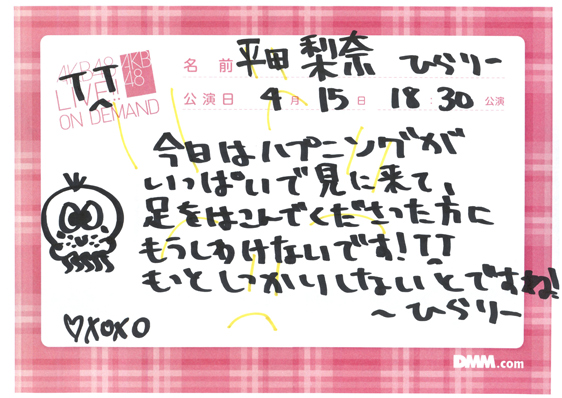 AKB48
LIVE!!
ON DEMAND
AKB
48
TT
名前 平田梨奈 ひらりー
公演日 4月15日 18:30公演
今日はハプニングが
いっぱいで見に来て、
足をはこんでくださった方に
もうしわけないです!TT
もっとしっかりしないとですね!
〜ひらりー
♡xoxo
DMM.com